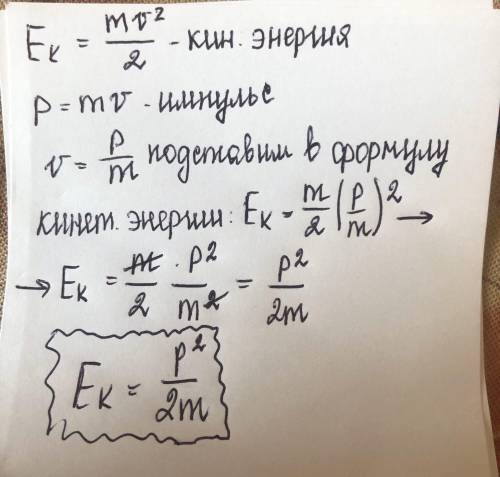 Eк = mv²/2 - кин. энергия
p = mv - импульс
v = p/m подставим в формулу
кинет. энергии: Eк = m/2 (p/m)² →
→ Eк = m/2 · p²/m² = p²/2m
Eк = p²/2m